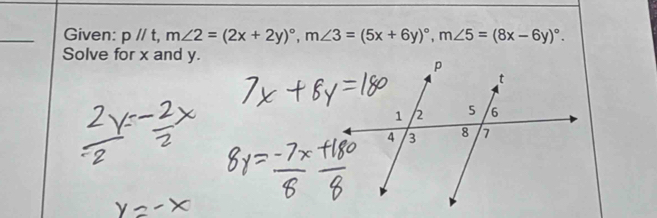 Given: p // t, m∠2 = (2x + 2y)°, m∠3 = (5x + 6y)°, m∠5 = (8x – 6y)°.
Solve for x and y.
7x + 8y = 180
2y = -2x
-2 2
8y = -7x +180
8 8
y = -x
p
t
1 2 5 6
4 3 8 7